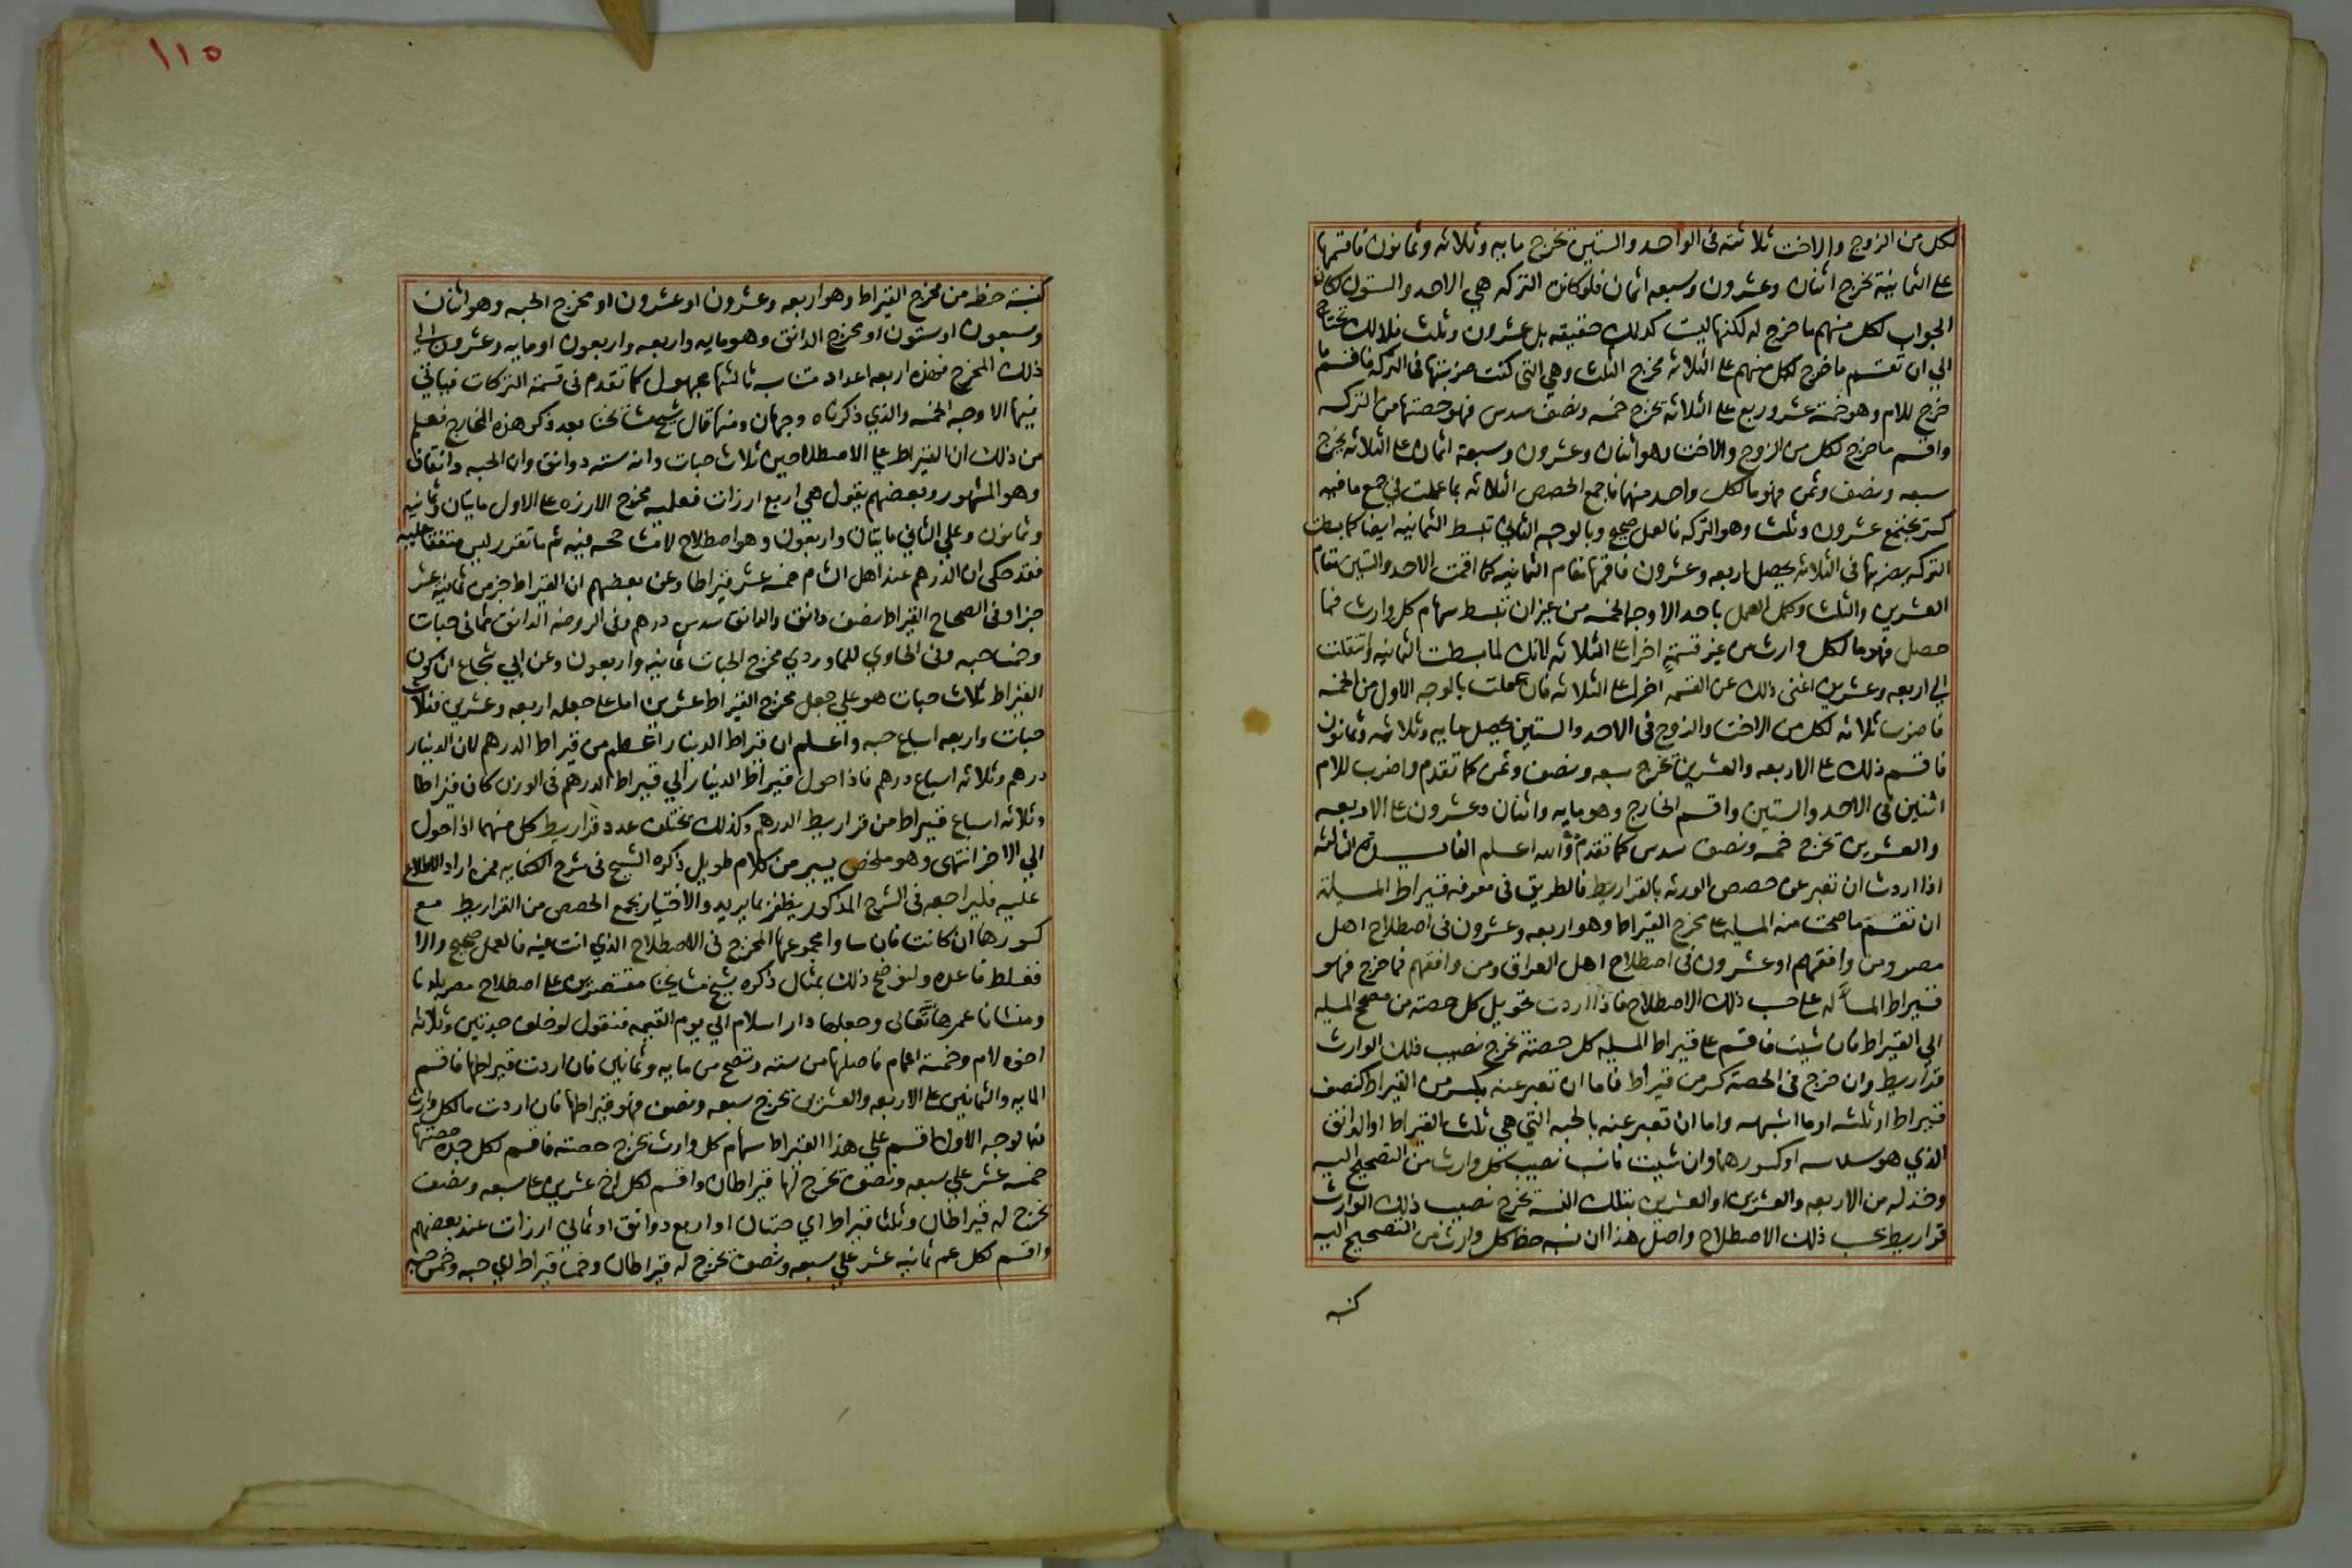 لكل من الزوج والاخت ثلاثة فى الواحد والستين تخرج مايه وثلاثه وثمانون فاقسمها
على الثمانية تخرج اثنان وعشرون وسبعه اثمان فلو كانت التركه هي الاحد والستون لكان
الجواب لكل منهم ما خرج له لكنها ليست كذلك حقيقه بل عشرون وثلث فلذلك تحتاج
الى ان تقسم ما خرج لكل منهم على الثلاثه مخرج الثلث وهي التى كنت ضربتها فى التركه فاقسم ما
خرج للام وهو خمسة عشر وربع على الثلاثه تخرج خمسه ونصف سدس فهو حصتها من التركه
واقسم ما خرج لكل من الزوج والاخت وهو اثنان وعشرون وسبعة اثمان على الثلاثه يخرج
سبعه ونصف وثمن فهو ما لكل واحد منهما فاجمع الحصص الثلاثه بما عملت في جمع ما فيه
كسر يجتمع عشرون وثلث وهو التركه فالعمل صحيح وبالوجه الثاني تبسط الثمانيه ايضا كما بسطت
التركه بضربها فى الثلاثه يحصل اربعه وعشرون فاقمها مقام الثمانيه كما اقمت الاحد والستين مقام
العشرين والثلث وكمل العمل باحد الاوجه الخمسه من غير ان تبسط سهام كل وارث فما
حصل فهو ما لكل وارث من غير قسمةٍ اخرا على الثلاثه لانك لما بسطت الثمانيه وانتقلت
الى اربعه وعشرين اغنى ذلك عن القسمه اخرا على الثلاثه فان عملت بالوجه الاول من الخمسه
فاضرب ثلاثه لكل من الاخت والزوج فى الاحد والستين يحصل مايه وثلاثه وثمانون
فاقسم ذلك على الاربعه والعشرين تخرج سبعه ونصف وثمن كما تقدم واضرب للام
اثنين فى الاحد والستين واقسم الخارج وهو مايه واثنان وعشرون على الاربعه
والعشرين تخرج خمسه ونصف سدس كما تقدم والله اعلم الثالثه
اذا اردت ان تعبر عن حصص الورثه بالقراريط فالطريق فى معرفه قيراط المسيلة
ان تقسم ما صحت منه المسيله على مخرج القيراط وهو اربعه وعشرون فى اصطلاح اهل
مصر ومن وافقهم او عشرون فى اصطلاح اهل العراق ومن وافقهم فما خرج فهو
قيراط المسأله على حسب ذلك الاصطلاح فاذا اردت تحويل كل حصته من مصحح المسيله
الى القيراط فان شيت فاقسم على قيراط المسيله كل حصته تخرج نصيب ذلك الوارث
قراريط وان خرج فى الحصة كسر من قيراط فاما ان تعبر عنه بكسر من القيراط كنصف
قيراط او ثلثه او ما اشبهه واما ان تعبر عنه بالحبه التى هي ثلث القيراط او الدانق
الذي هو سدسه او كسورهما وان شيت فانسب نصيب كل وارث من التصحيح اليه
وخذ له من الاربعه والعشرين او العشرين بتلك النسبة تخرج نصيب ذلك الوارث
قراريط بحسب ذلك الاصطلاح واصل هذا ان نسبه حظ كل وارث من التصحيح اليه
كنسبه
١١٥
كنسبة حظه من مخرج القيراط وهو اربعه وعشرون او عشرون او مخرج الحبه وهو اثنان
وسبعون او ستون او مخرج الدانق وهو مايه واربعه واربعون او مايه وعشرون الى
ذلك المخرج فهذه اربعه اعداد متناسبه ثالثها مجهول كما تقدم فى قسمة التركات فياتي
فيها الاوجه الخمسه والذي ذكرناه وجهان ومنها قال شيخ مشايخنا بعد ذكر هذه المخارج فعلم
من ذلك ان القيراط على الاصطلاحين ثلاث حبات وانه سته دوانق وان الحبه دانقان
وهو المشهور وبعضهم يقول هي اربع ارزات فعليه مخرج الارزه على الاول مايتان وثمانيه
وثمانون وعلى الثاني مايتان واربعون وهو اصطلاح لا مشاححه فيه ثم ما تقرر ليس متفقا عليه
فقد حكى ان الدرهم عند اهل الشام خمسه عشر قيراطا وعن بعضهم ان القيراط جزء من ثمانيه عشر
جزا وفى الصحاح القيراط نصف دانق والدانق سدس درهم وفى الروضه الدانق ثمانى حبات
وخمسا حبه وفى الحاوي للماوردي مخرج الحبات ثمانيه واربعون وعن ابي شجاع ان كون
القيراط ثلاث حبات هو على جعل مخرج القيراط عشرين اما على جعله اربعه وعشرين فثلاث
حبات واربعه اسباع حبه واعلم ان قيراط الدينار اعظم من قيراط الدرهم لان الدينار
درهم وثلاثه اسباع درهم فاذا حول قيراط الدينار الى قيراط الدرهم فى الوزن كان قيراطا
وثلاثه اسباع قيراط من قراريط الدرهم وكذلك يختلف عدد قراريط كل منهما اذا حول
الى الاخر انتهى وهو ملخص يسير من كلام طويل ذكره الشيخ فى شرح الكفايه فمن اراد الاطلاع
عليه فليراجعه فى الشرح المذكور يظفر بما يريد والاختبار بجمع الحصص من القراريط مع
كسورها ان كانت فان ساوا مجموعها المخرج فى الاصطلاح الذي انت فيه فالعمل صحيح والا
فغلط فاعده ولنوضح ذلك بمثال ذكره شيخ مشايخنا مقتصرين على اصطلاح مصر بلدنا
ومنشانا عمرها الله تعالى وجعلها دار اسلام الى يوم القيمه فنقول لو خلف جدتين وثلاثه
اخوه لام وخمسة اعمام فاصلها من سته وتصح من مايه وثمانين فان اردت قيراطها فاقسم
المايه والثمانين على الاربعه والعشرين تخرج سبعه ونصف فهو قيراطها فان اردت ما لكل وارث
فبالوجه الاول اقسم على هذا القيراط سهام كل وارث تخرج حصته فاقسم لكل جده حصتها
خمسه عشر على سبعه ونصف تخرج لها قيراطان واقسم لكل اخ عشرين على سبعه ونصف
تخرج له قيراطان وثلثا قيراط اي حبتان او اربع دوانق او ثماني ارزات عند بعضهم
واقسم لكل عم ثمانيه عشر على سبعه ونصف تخرج له قيراطان وخمسا قيراط اي حبه وخمس حبه